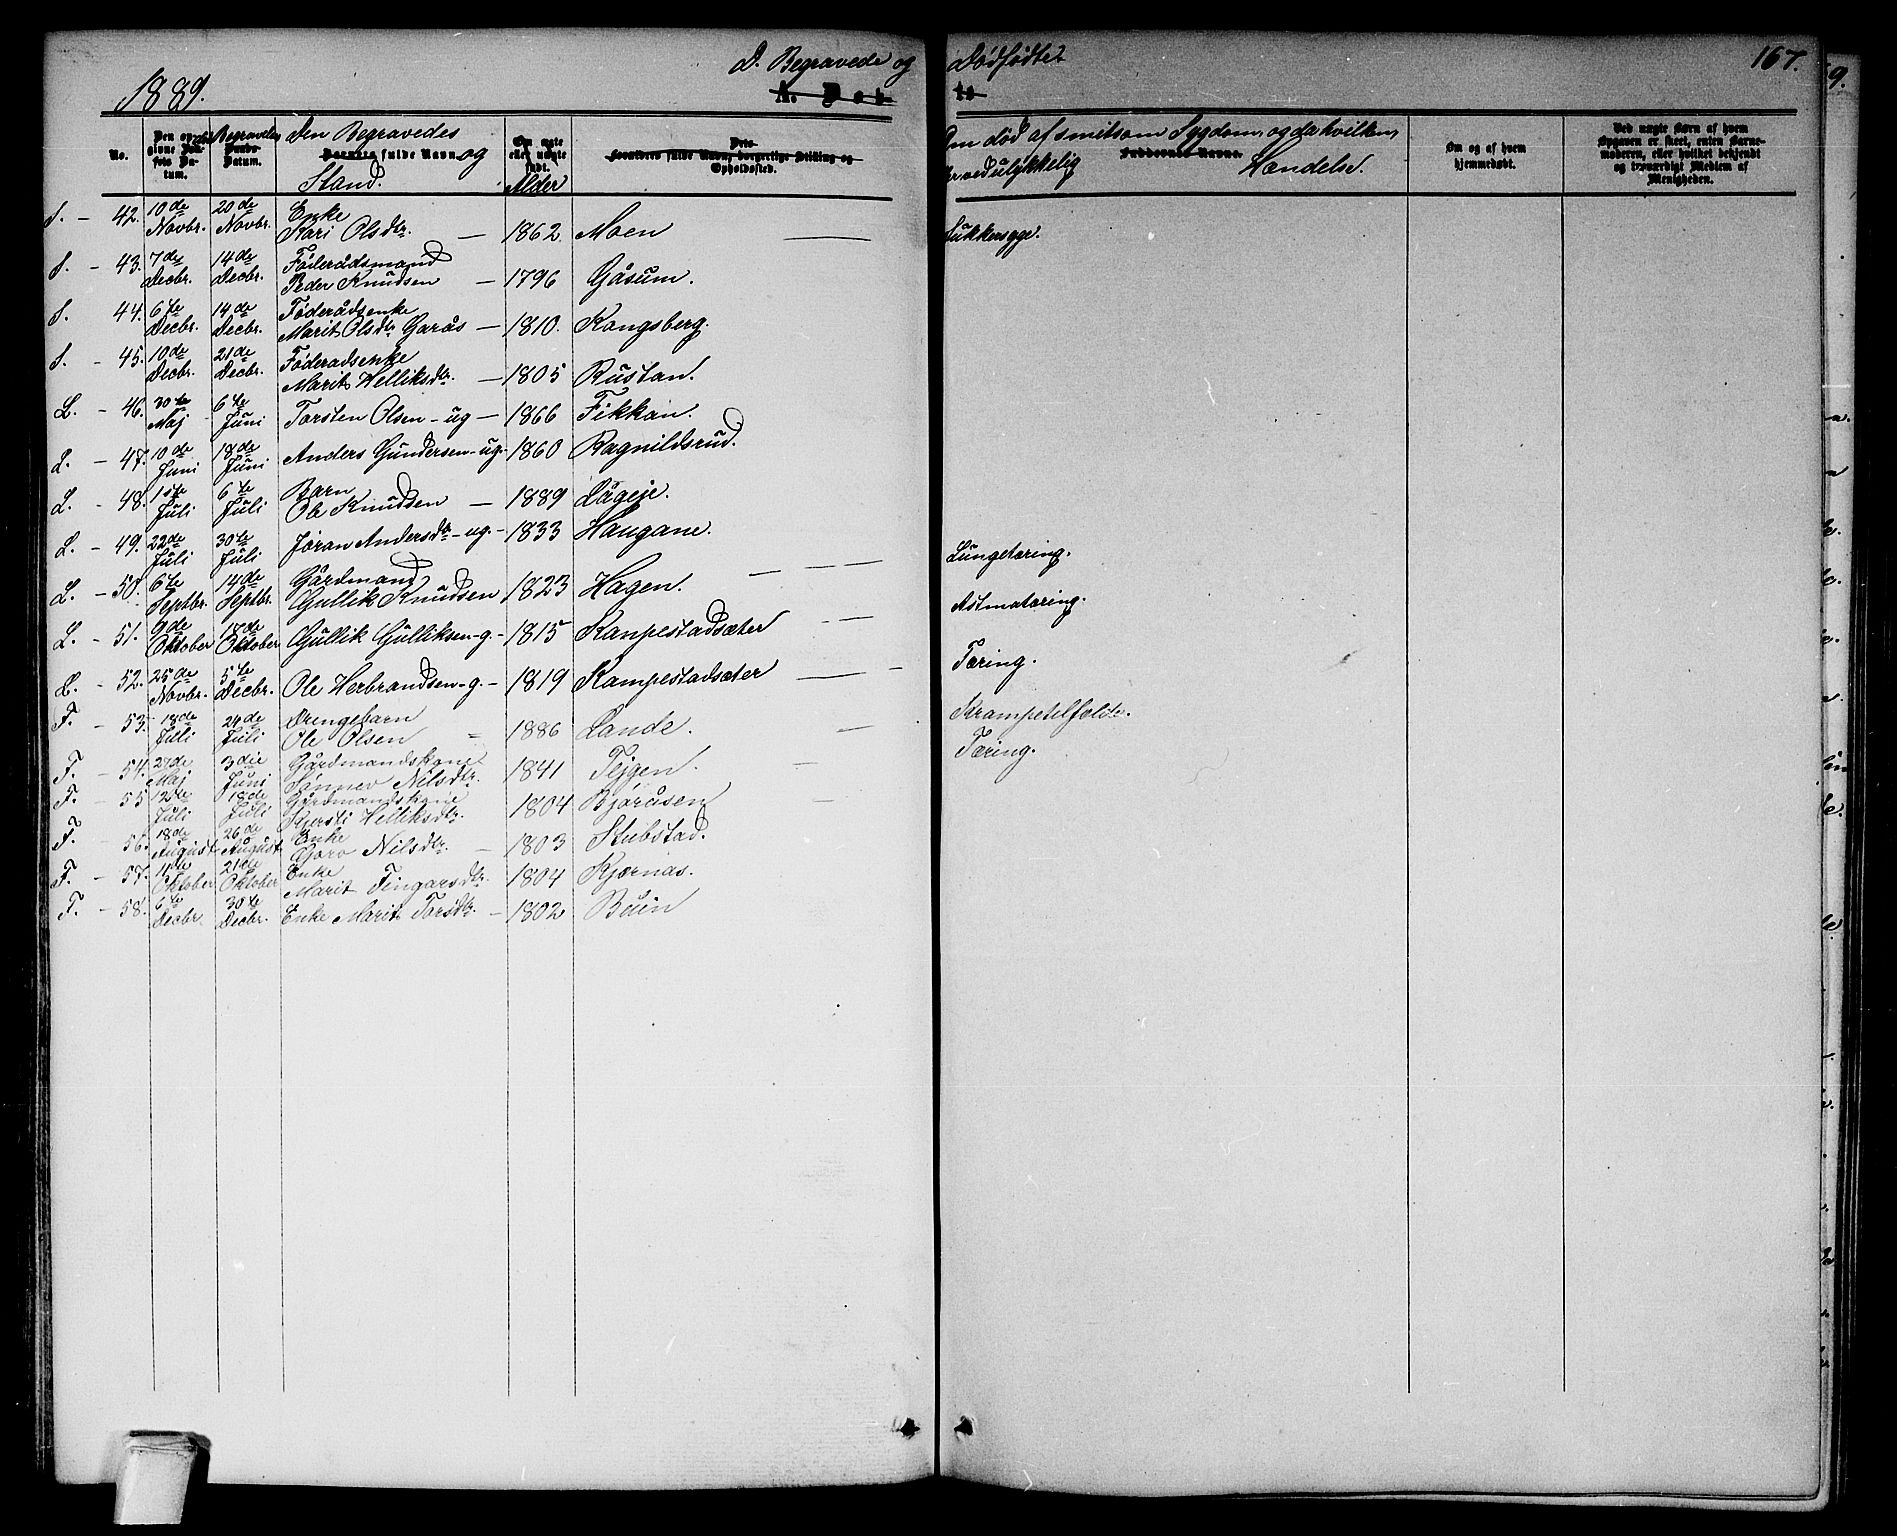 1889.
D. Begravede og Dødfødte.
167.
A. Døb te
No.
Den opgivne Døds Datum.
Begravelses Datum.
Den Begravedes fulde Navn og Stand.
Om ægte eller uægte født. Alder
Dets Forældres fulde Navn, borgerlige Stilling og Opholdssted.
Om død af smitsom Sygdom, og da hvilken,
er ved ulykkelig Hændelse.
Faddernes Navne.
Om og af hvem hjemmedøbt.
Ved uægte Børn af hvem Opgaven er skeet, enten Barnemoderen, eller hvilket bekjendt og troværdigt Medlem af Menigheden.
S. - 42. 10de Novbr. 20de Novbr. Enke Kari Olsdtr. — 1862. Moen — Sukkersyge.
S. - 43. 7de Decbr. 14de Decbr. Føderådsmand Peder Knudsen — 1796 Gåsum.
S. 44. 6te Decbr. 14de Decbr. Føderådsenke Marit Olsdtr Garås — 1810. Kongsberg.
S. - 45. 10de Decbr. 21de Decbr. Føderadsenke Marit Helliksdtr. — 1805 Rustan.
L. - 46. 30te Maj 6te Juni Torsten Olsen - ug — 1866 Fikkan.
L. - 47. 10de Juni 18de Juni Anders Gundersen - ug. - 1860 Ragnildsrud.
L. - 48. 1ste Juli 6te Juli Barn Ole Knudsen — 1889 Lågeje.
L. - 49. 22de Juli 30te Juli Jøran Andersdtr - ug. - 1833 Haugane. Lungetæring.
L. - 50. 6te Septbr. 14de Septbr. Gårdmand Gullik Knudsen 1823 Hagen. — — — Astmatæring.
L. - 51. 9de Oktober 17de Oktober Gullik Gulliksen - g. - 1815 Kanpestadsæter — Tæring.
L. - 52. 25de Novbr. 5te Decbr. Ole Herbrandsen - g. - 1819 Kampestadsæter — — Krampetilfælde.
F. - 53. 18de Juli 24de Juli Drengebarn Ole Olsen - 1886 Lande. — Tæring.
F. - 54. 27de Maj 3die Juni Gårdmandskone Sønnev Nilsdtr. 1841 Tejgen.
F. - 55 12te Juli 18de Juli Gårdmandskone Kjersti Helliksdtr. 1804 Bjøråsen
F. - 56. 18de August 26de August Enke Goro Nilsdtr. — 1803 Stubstad.
F. - 57. 11te Oktober 21de Oktober Enke Marit Fingarsdtr. 1804 Kjørnås.
F. - 58. 6te Decbr. 30te Decbr. Enke Marit Torsdtr. — 1802 Buin